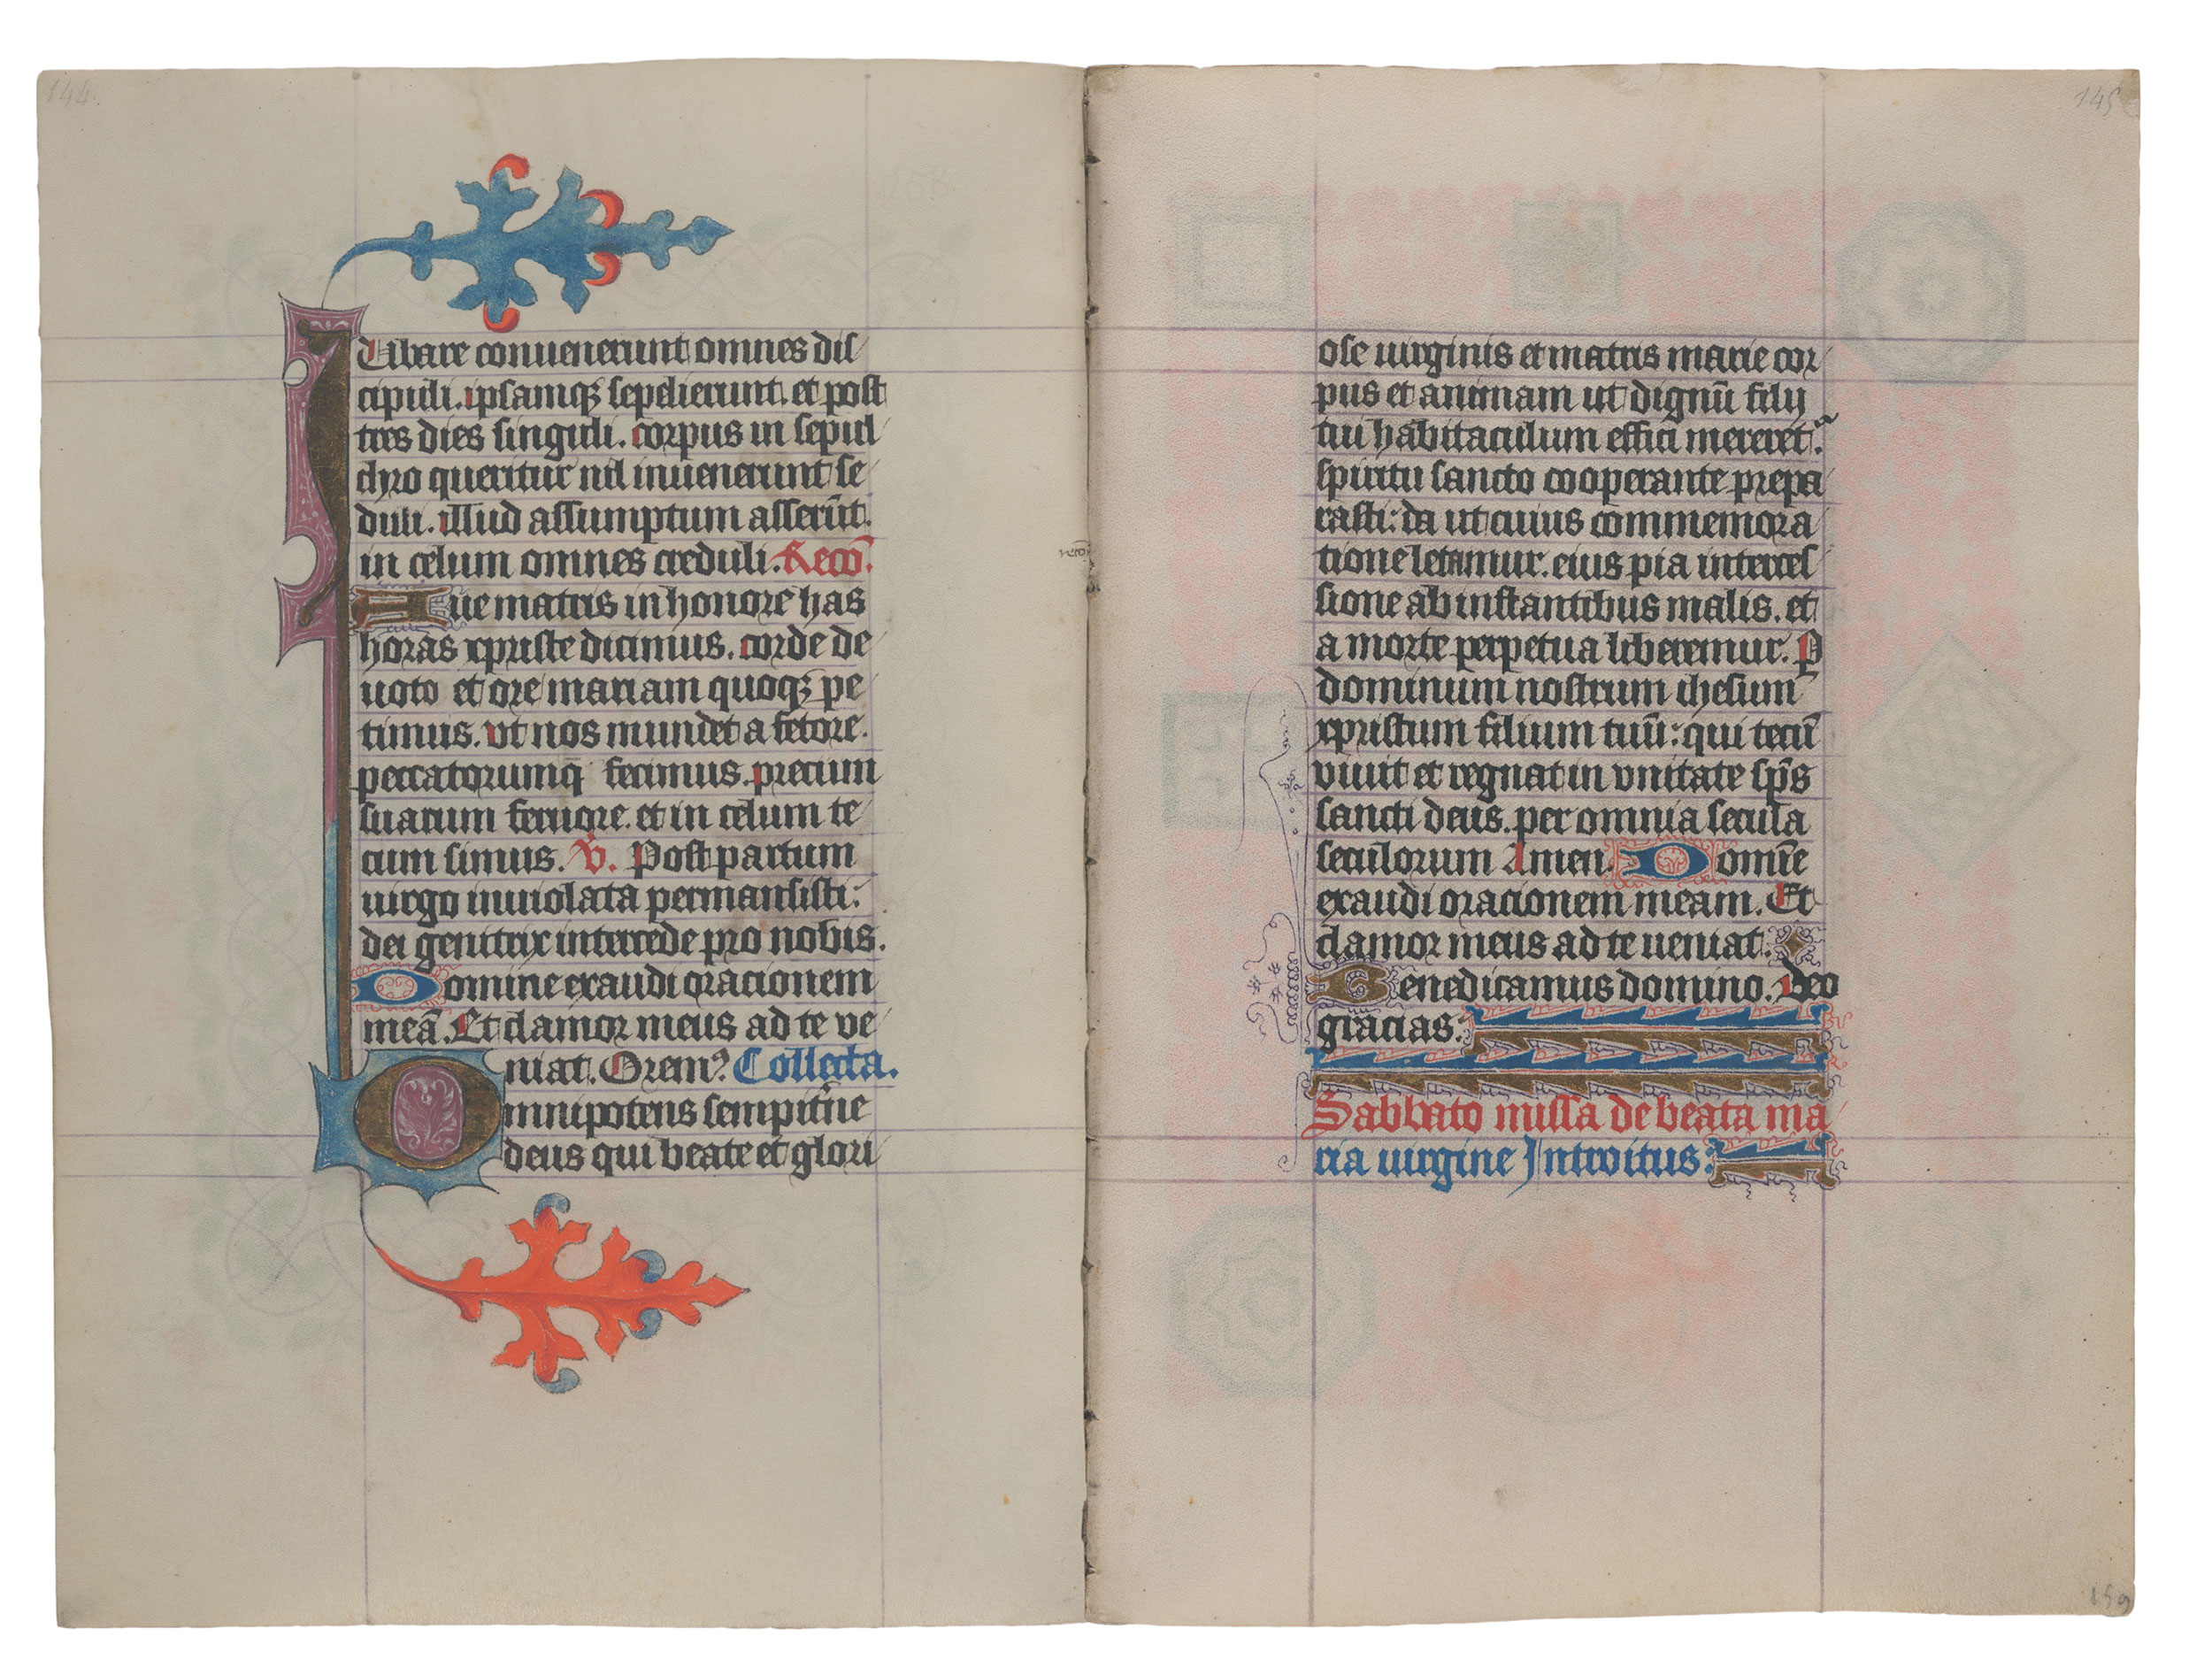 144.
Iubare convenerunt omnes dis
cipuli. ipsamq; sepelierunt. et post
tres dies singuli. corpus in sepul
chro queritur nil invenerunt se
duli. illud assumptum asserūt.
in celum omnes creduli. Recō.
Aue matris in honore has
horas xpriste dicimus. corde de
uoto et ore mariam quoq; pe
timus. vt nos mundet a fetore.
peccatorumq̄ fecimus. precum
suarum feruore. et in celum te
cum simus. V̄. Post partum
uirgo inuiolata permansisti:
dei genitrix intercede pro nobis.
Domine exaudi oracionem
meā. Et clamor meus ad te ve
niat. Orem⁹ Collecta.
Omnipotens sempit̄ne
deus qui beate et glori
145
ose uirginis et matris marie cor
pus et animam ut dignū filij
tui habitaculum effici mereret̄.
spiritu sancto cooperante prepa
rasti: da ut cuius commemora
tione letamur. eius pia interces
sione ab instantibus malis. et
a morte perpetua liberemur. P
dominum nostrum ihesum
xpristum filium tuū: qui tecū
viuit et regnat in vnitate sp̄s
sancti deus. per omnia secula
seculorum Amen. Domīe
exaudi oracionem meam. Et
clamor meus ad te ueniat.
Benedicamus domino. Deo
gracias:
Sabbato missa de beata ma
ria uirgine Introitus:
159